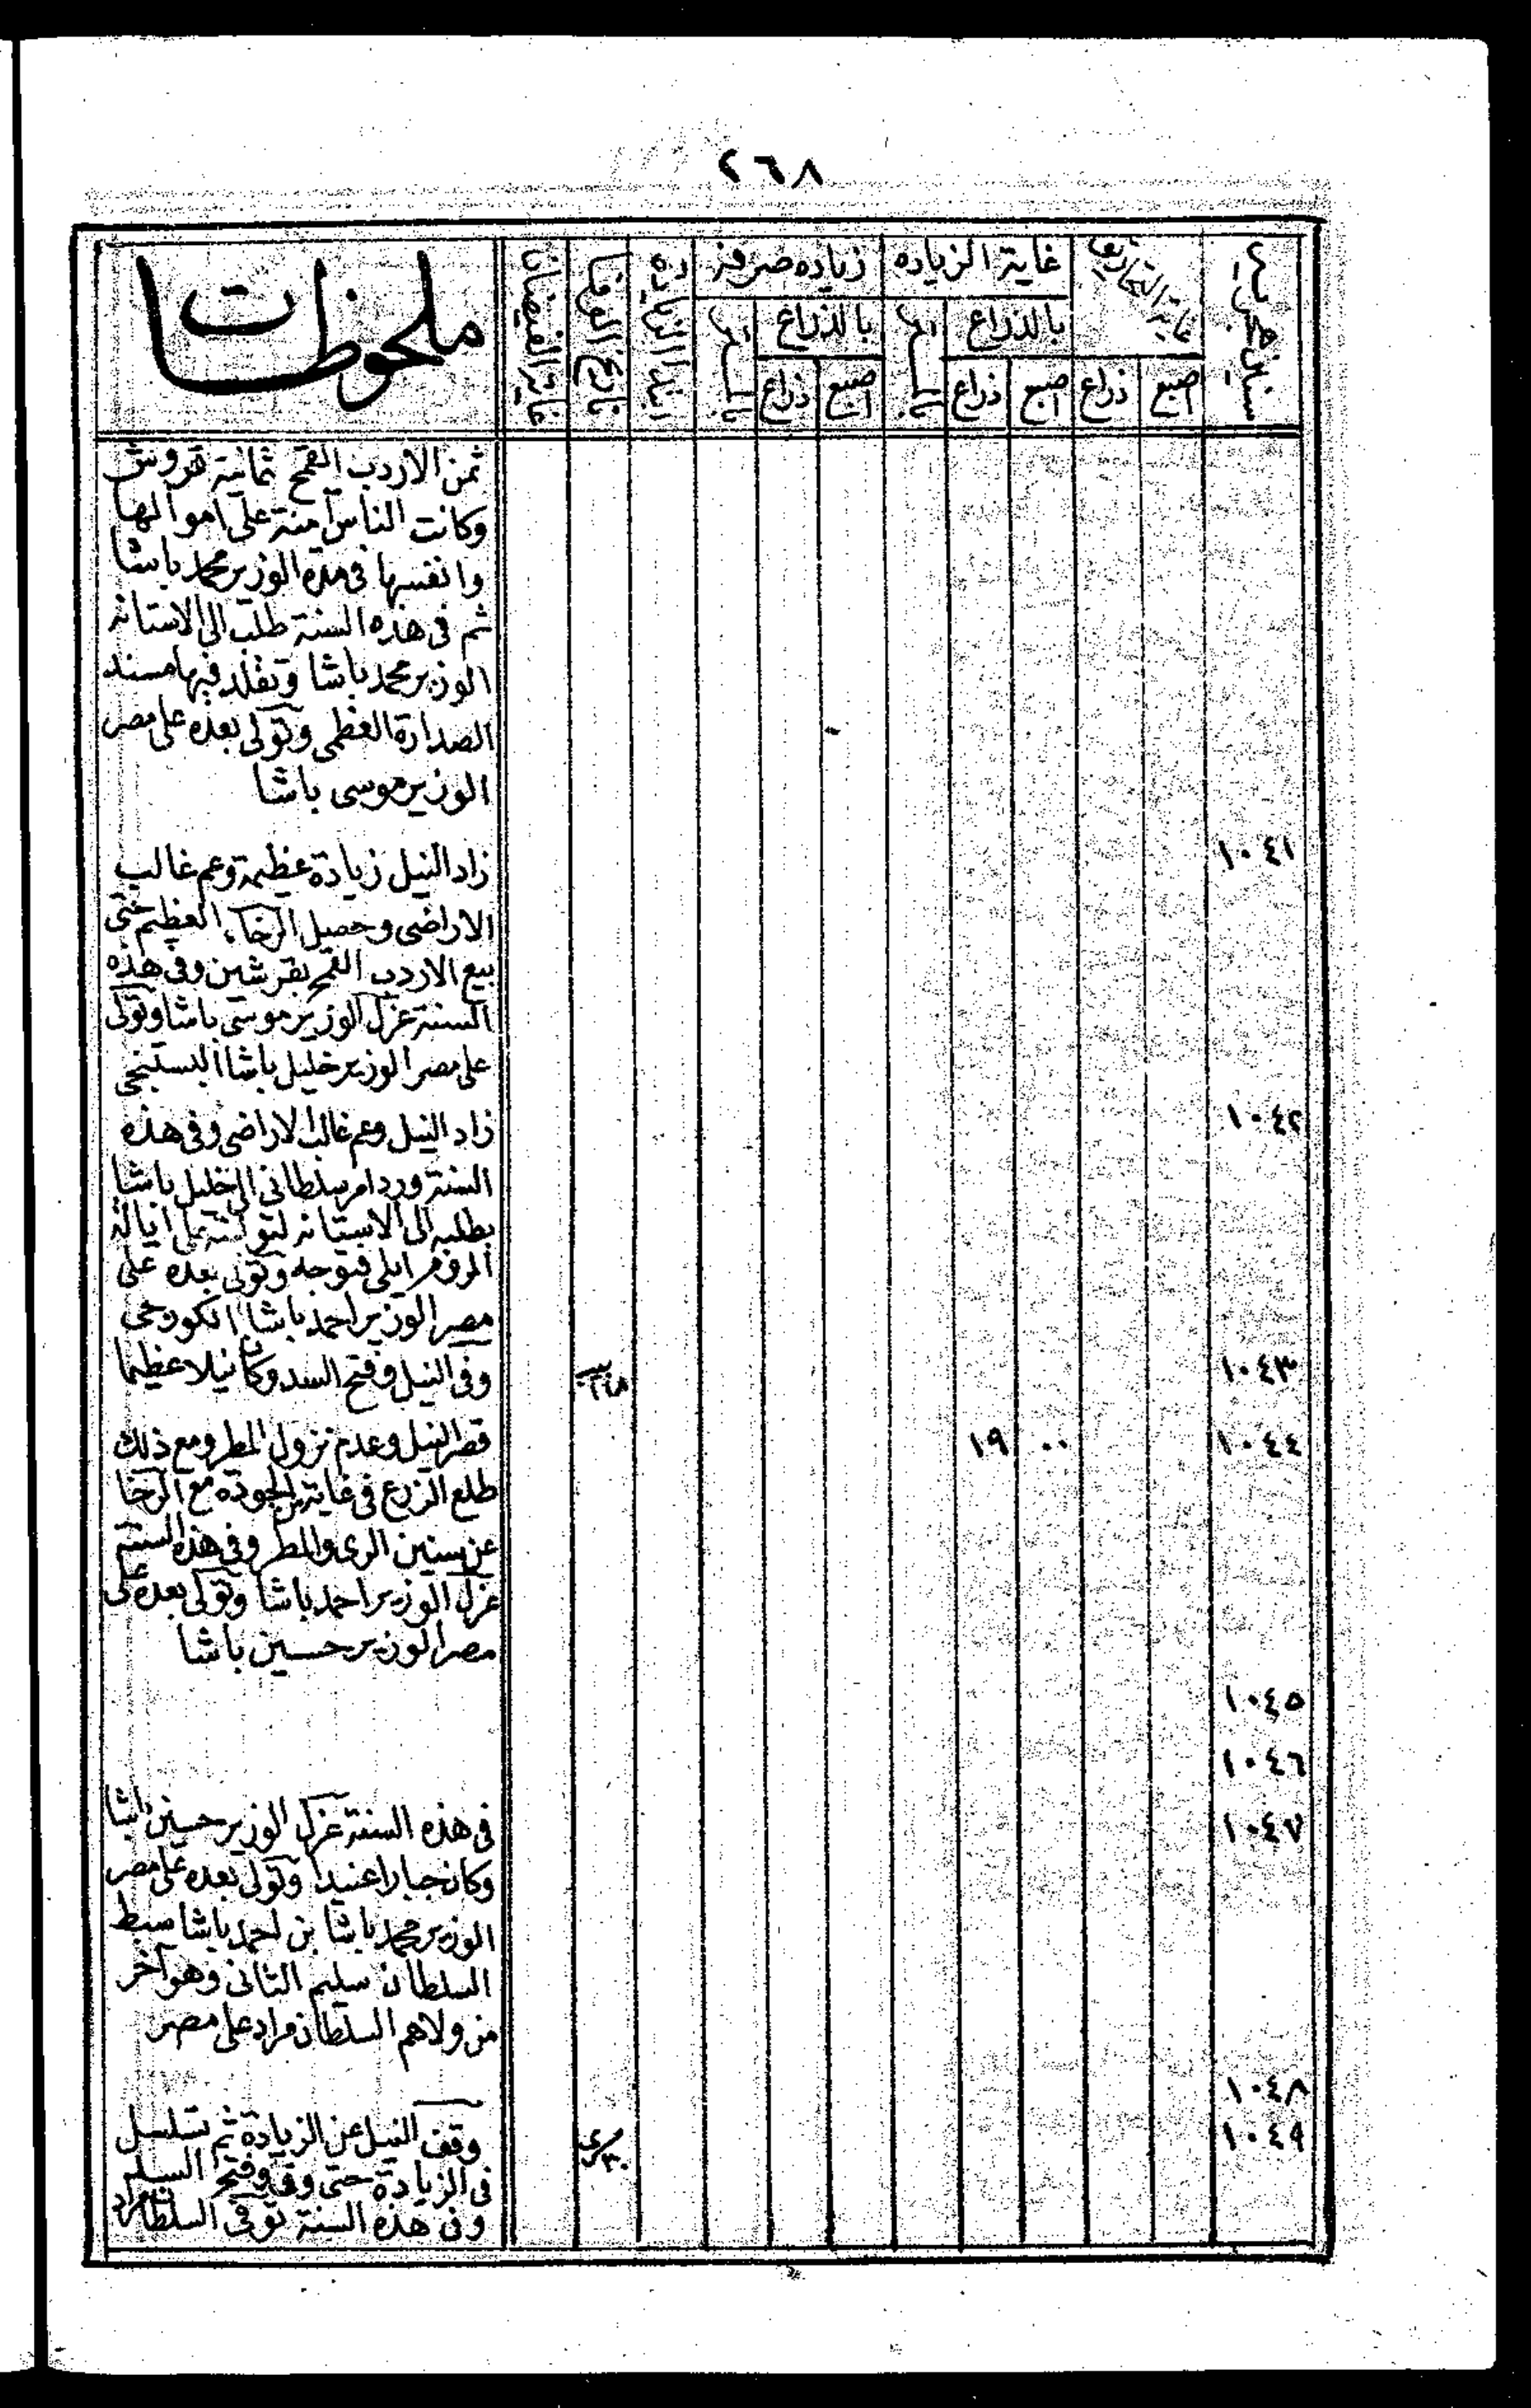 ٢٦٨
سنين هجرية
غاية التحاريق
غاية الزياده
زياده صرفه
ابتدا الزياده
تاريخ الوفا
غاية الفيضان
ملحوظات
بالذراع
بالذراع
اصبع
ذراع
اصبع
ذراع
اصبع
ذراع
ثمن الاردب القمح ثمانية قروش
وكانت الناس امنة على اموالها
وانفسها فى مدة الوزير محمد باشا
ثم فى هذه السنة طلب الى الاستانه
الوزير محمد باشا وتقلد فيها مسند
الصدارة العظمى وتولى بعده على مصر
الوزير موسى باشا
١٠٤١
زاد النيل زيادة عظيمة وعم غالب
الاراضى وحصل الرخاء العظيم حتى
بيع الاردب القمح بقرشين وفى هذه
السنة عزل الوزير موسى باشا وتولى
على مصر الوزير خليل باشا البستنجى
١٠٤٢
زاد النيل وعم غالب الاراضى وفى هذه
السنة ورد امر سلطانى الى خليل باشا
بطلبه الى الاستانه لتوليته على ايالة
الروم ايلى فتوجه وتولى بعده على
مصر الوزير احمد باشا الكورجى
١٠٤٣
وفى النيل وفتح السد وكان نيلا عظيما
١٠٤٤ ٠٠ ١٩
قصر النيل وعدم نزول المطر ومع ذلك
طلع الزرع فى غاية الجودة مع الرخا
عن سنين الرى والمطر وفى هذه السنة
عزل الوزير احمد باشا وتولى بعده على
مصر الوزير حسين باشا
١٠٤٥
١٠٤٦
١٠٤٧
فى هذه السنة عزل الوزير حسين باشا
وكان جبارا عنيدا وتولى بعده على مصر
الوزير محمد باشا بن احمد باشا سبط
السلطان سليم الثانى وهو آخر
من ولاهم السلطان مراد على مصر
١٠٤٨
١٠٤٩
وقف النيل عن الزيادة ثم تسلسل
فى الزيادة حتى وفى وفتح السد
وفى هذه السنة توفى السلطان مراد